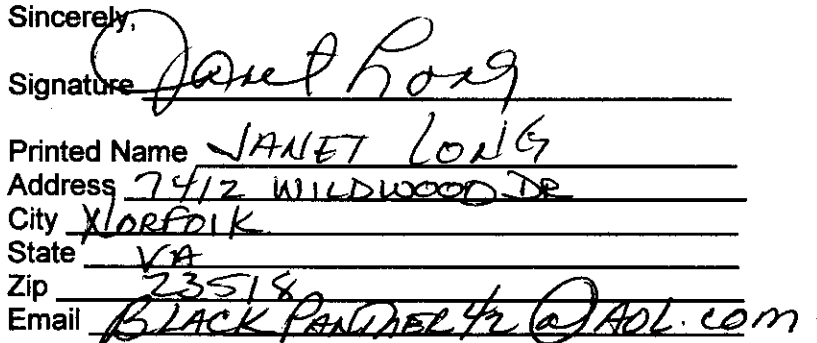 Sincerely,
Signature Janet Long
Printed Name JANET LONG
Address 7412 WILDWOOD DR
City NORFOlK
State VA
Zip 23518
Email BLACKPANTHER42@AOL.com